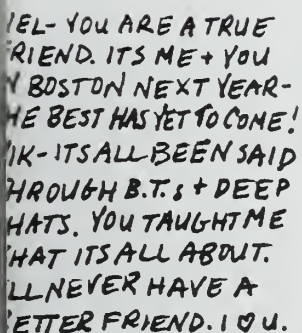 EL- YOU ARE A TRUE
RIEND. ITS ME + YOU
BOSTON NEXT YEAR-
E BEST HAS YET TO COME!
IK- ITS ALL BEEN SAID
HROUGH B.T.s + DEEP
HATS. YOU TAUGHT ME
HAT ITS ALL ABOUT.
LL NEVER HAVE A
ETTER FRIEND. I ♡ U.